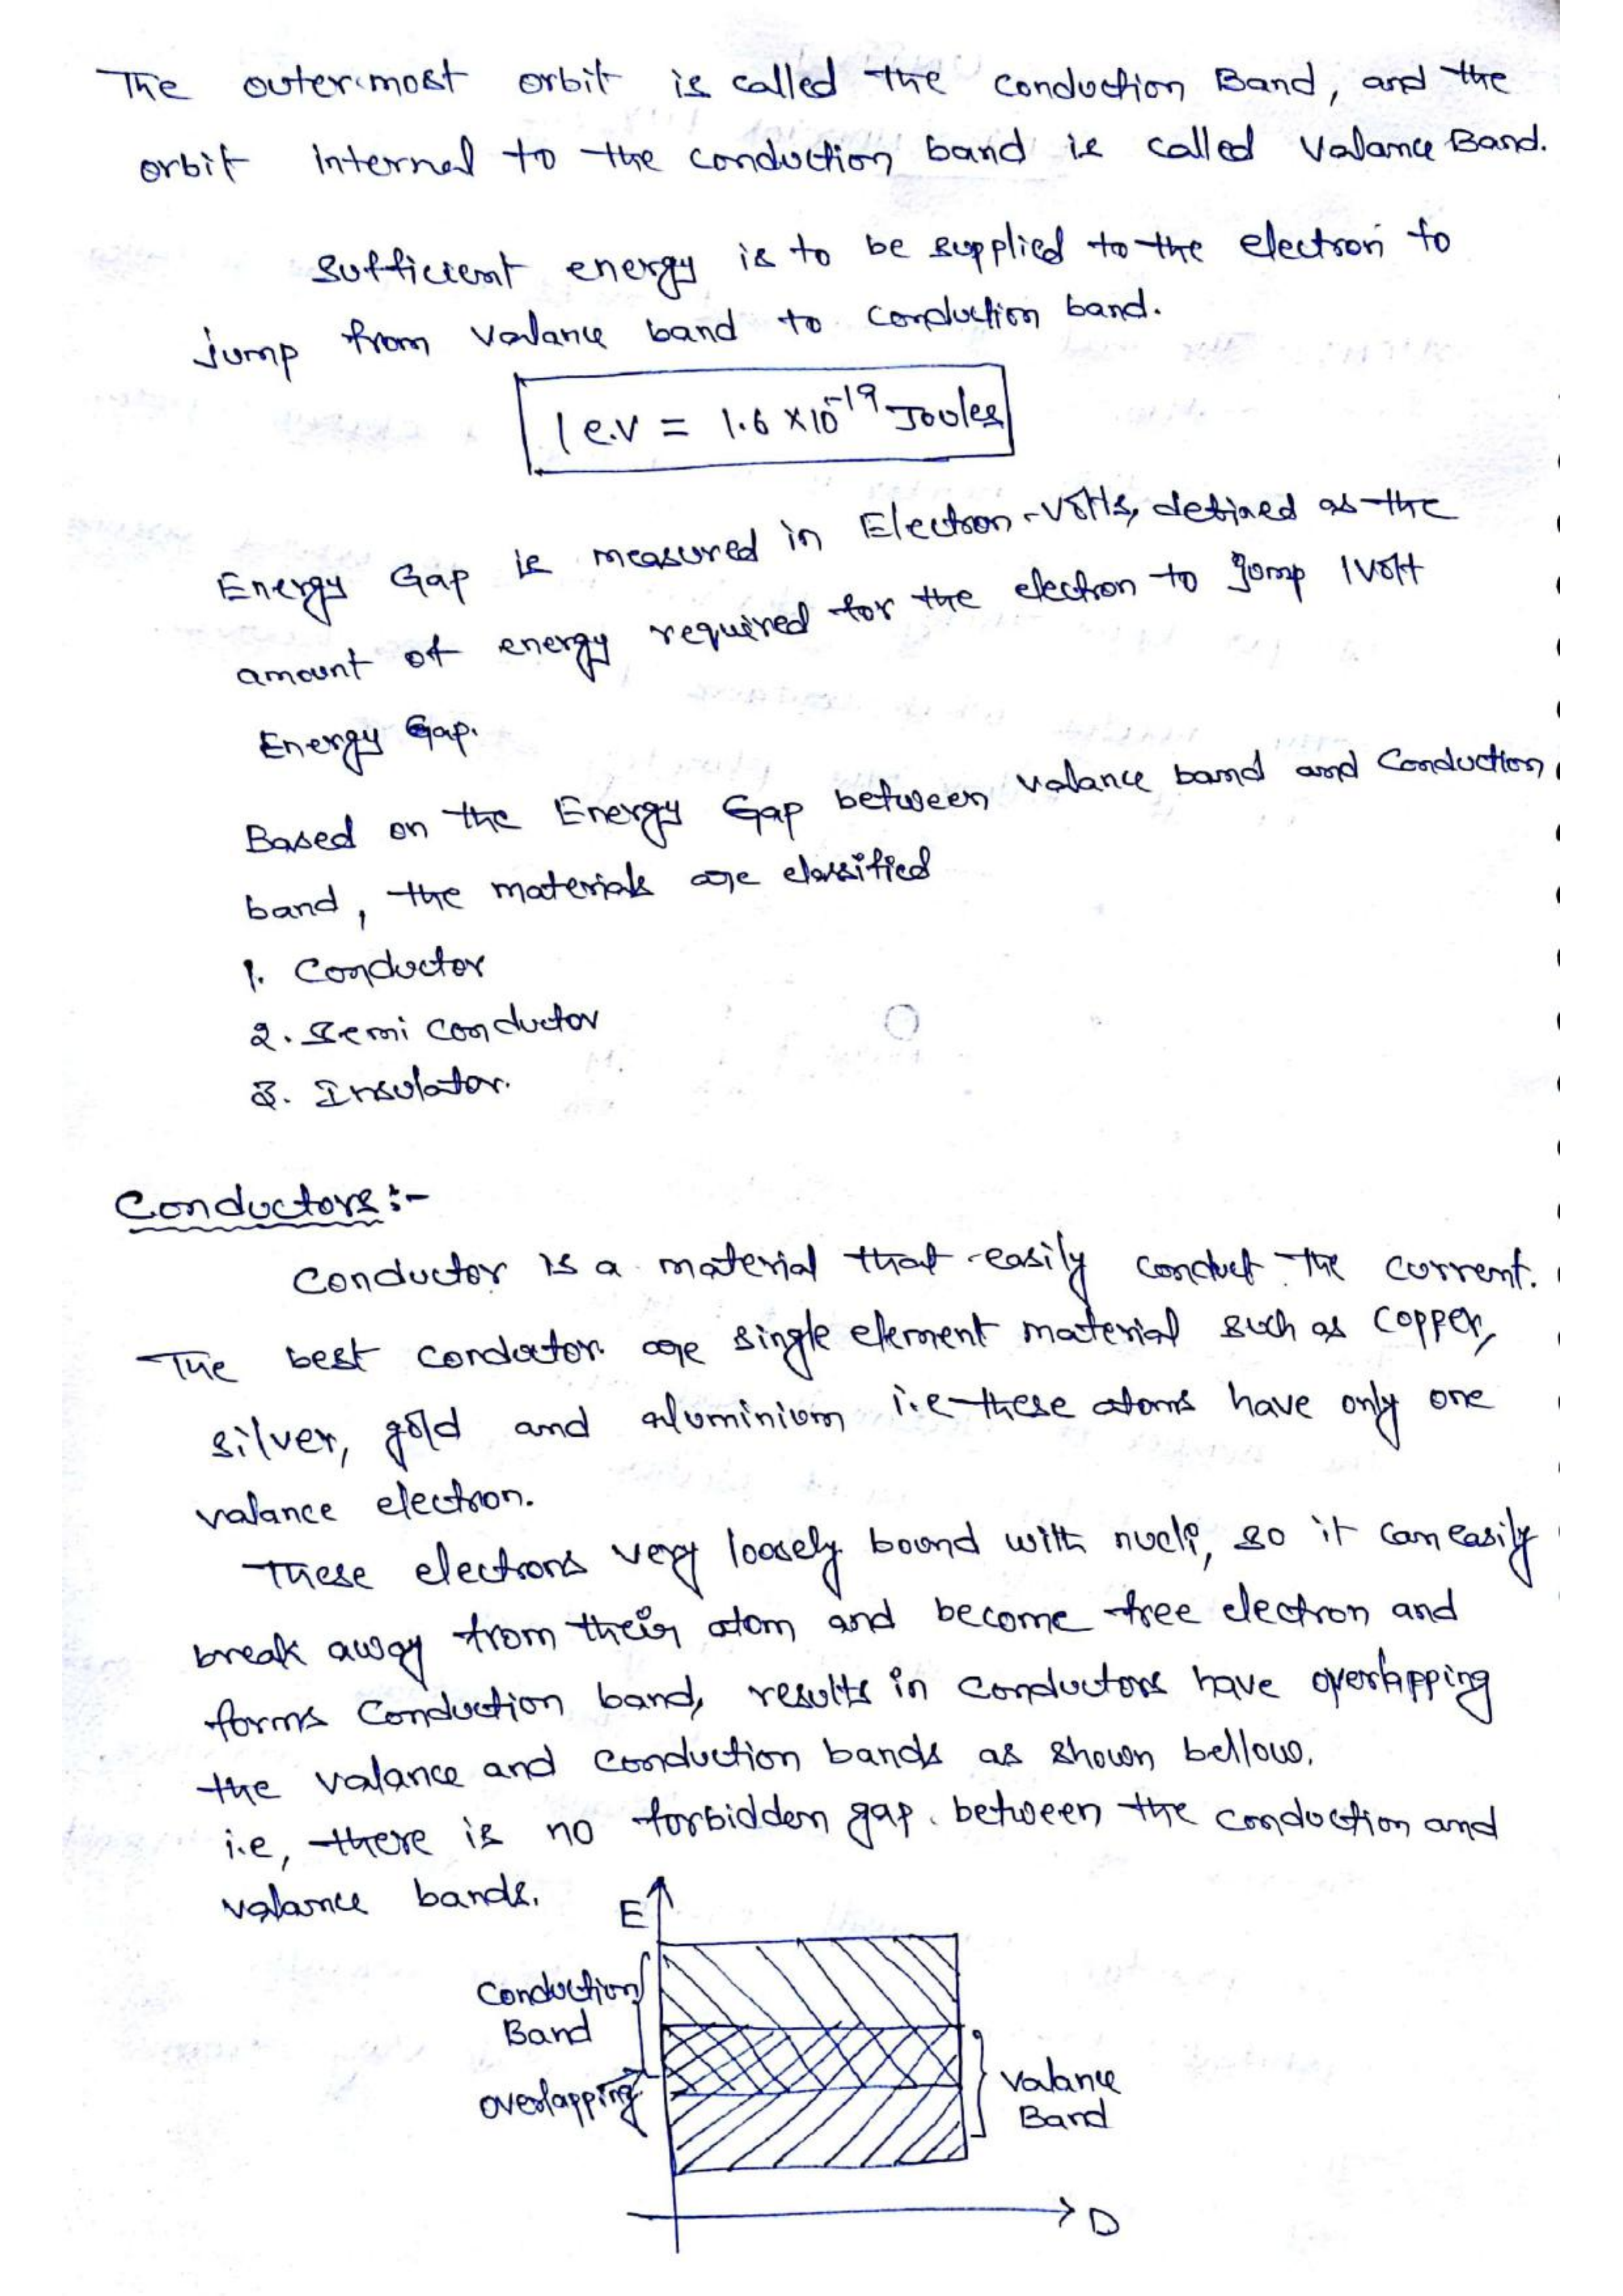 The outermost orbit is called the conduction Band, and the
orbit internal to the conduction band is called Valance Band.
Sufficient energy is to be supplied to the electron to
jump from valance band to conduction band.
1 e.v = 1.6 x 10^-19 Joules
Energy Gap is measured in Electron-Volts, defined as the
amount of energy required for the electron to jump 1 volt
Energy Gap.
Based on the Energy Gap between valance band and Conduction
band, the materials are classified
1. Conductor
2. Semi conductor
3. Insulator.
Conductors:-
Conductor is a material that easily conduct the current.
The best conductor are single element material such as copper,
silver, gold and aluminium i.e these atoms have only one
valance electron.
These electrons very loosely bound with nucli, so it can easily
break away from their atom and become free electron and
forms Conduction band, results in conductors have overlapping
the valance and conduction bands as shown bellow.
i.e, there is no forbidden gap. between the conduction and
valance bands.
E
Conduction
Band
overlapping
Valance
Band
D